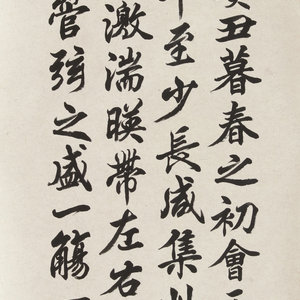 丑暮春之初會
至少長咸集
激湍暎帶左右
管弦之盛一觴